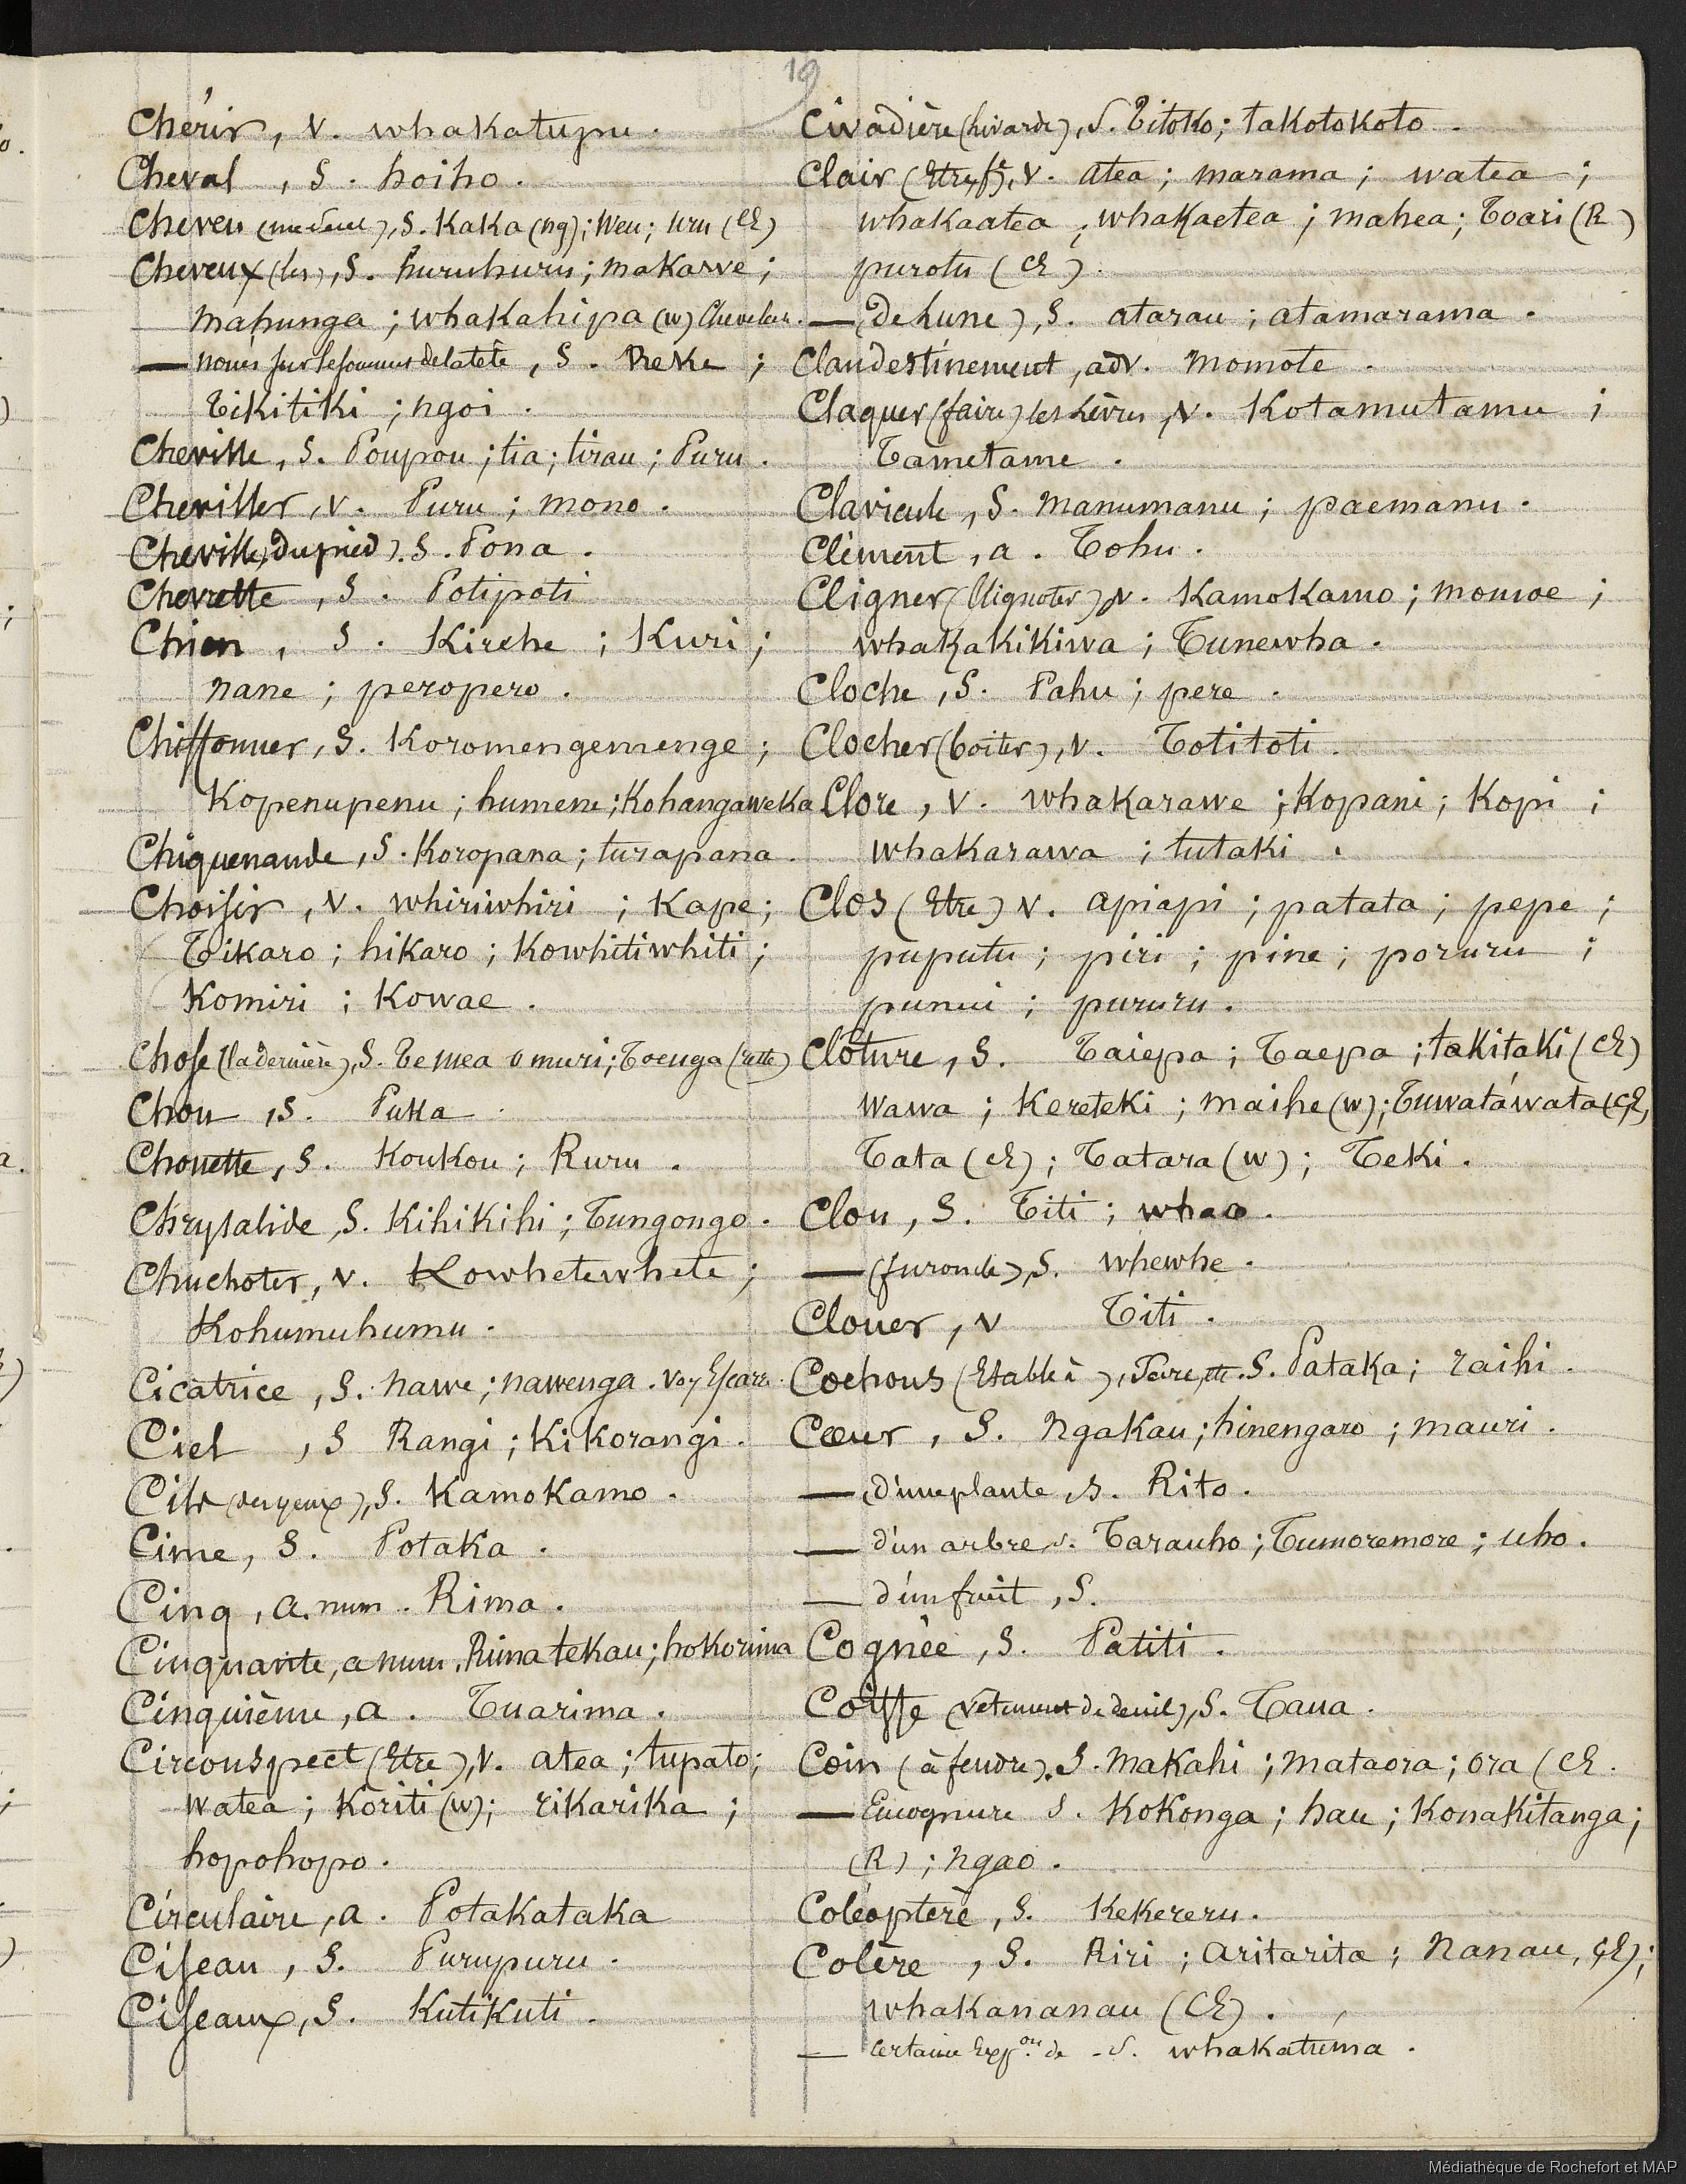 19
Chérir, v. whakatupu.
Cheval, S. hoiho.
Cheveu (un seul), S. Kaka (ng); Weu; Uru (CE)
Cheveux (les), S. huruhuru; makawe;
mahunga; whakahipa (w) Chevelure.
— noués sur le sommet de la tête, S. Reke;
Tikitiki; ngoi.
Cheville, S. Poupou; tia; tirau; Puru.
Cheviller, v. Puru; mono.
Cheville (du pied), S. Pona.
Chevrette, S. Potipoti
Chien, S. Kirehe; Kuri;
nane; peropero.
Chiffonner, S. Koromengemenge;
Kopenupenu; humene; Kohangaweka
Chiquenaude, S. Koropana; turapana.
Choisir, v. whiriwhiri; Kape;
Tikaro; hikaro; Kowhitiwhiti;
Komiri; Kowae.
Chose (la dernière), S. Te mea o muri; Toenga (reste)
Chou, S. Puka.
Chouette, S. Koukou; Ruru.
Chrysalide, S. Kihikihi; Tungongo.
Chuchoter, v. Kowhetewhete;
Kohumuhumu.
Cicatrice, S. nawe; nawenga. Voy Escarre.
Ciel, S Rangi; Kikorangi.
Cils (des yeux), S. Kamokamo.
Cime, S. Potaka.
Cinq, a. num. Rima.
Cinquante, a num. Rima tekau; hokorima
Cinquième, a. Tuarima.
Circonspect (Etre), v. atea; tupato;
watea; Koriti (w); rikarika;
hopohopo.
Circulaire, a. Potakataka
Ciseau, S. Purupuru.
Ciseaux, S. Kutikuti.
Civadière (livarde), S. Titoko; takotokoto.
Clair (Etre, fe), v. atea; marama; watea;
whakaatea; whakaetea; mahea; Toari (R)
purotu (CE).
— (de Lune), S. atarau; atamarama.
Clandestinement, adv. momote.
Claquer (faire) les Lèvres, v. Kotamutamu;
Tametame.
Clavicule, S. manumanu; paemanu.
Clément, a. Tohu.
Cligner (Clignoter), v. Kamokamo; momoe;
whakakikiwa; Tunewha.
Cloche, S. Pahu; pere.
Clocher (boiter), v. Totitoti.
Clore, v. whakarawe; Kopani; Kopi;
whakarawa; tutaki.
Clos (Etre) v. apiapi; patata; pepe;
puputu; piri; pine; poruru;
punui; pururu.
Clôture, S. Taiepa; Taepa; takitaki (CE)
wawa; Kereteki; maihe (w); Tuwatáwata (CE,
Tata (CE); Tatara (w); Teki.
Clou, S. Titi; whao.
— (furoncle), S. whewhe.
Clouer, v Titi.
Cochons (Etable à), Parc, etc. S. Pataka; raihi.
Cœur, S. Ngakau; hinengaro; mauri.
— d'une plante, S. Rito.
— d'un arbre, S. Tarauho; Tumoremore; uho.
— d'un fruit, S.
Cognée, S. Patiti.
Coiffe (vêtement de deuil), S. Taua.
Coin (à fendre), S. makahi; mataora; ora (CE.
— Encognure S. Kokonga; hau; Konakitanga;
(R); ngao.
Coléoptère, S. Kekereru.
Colère, S. Riri; aritarita; Nanau, (CE);
whakananau (CE).
— certaine Exp.on de - S. whakatuma.
Médiathèque de Rochefort et MAP